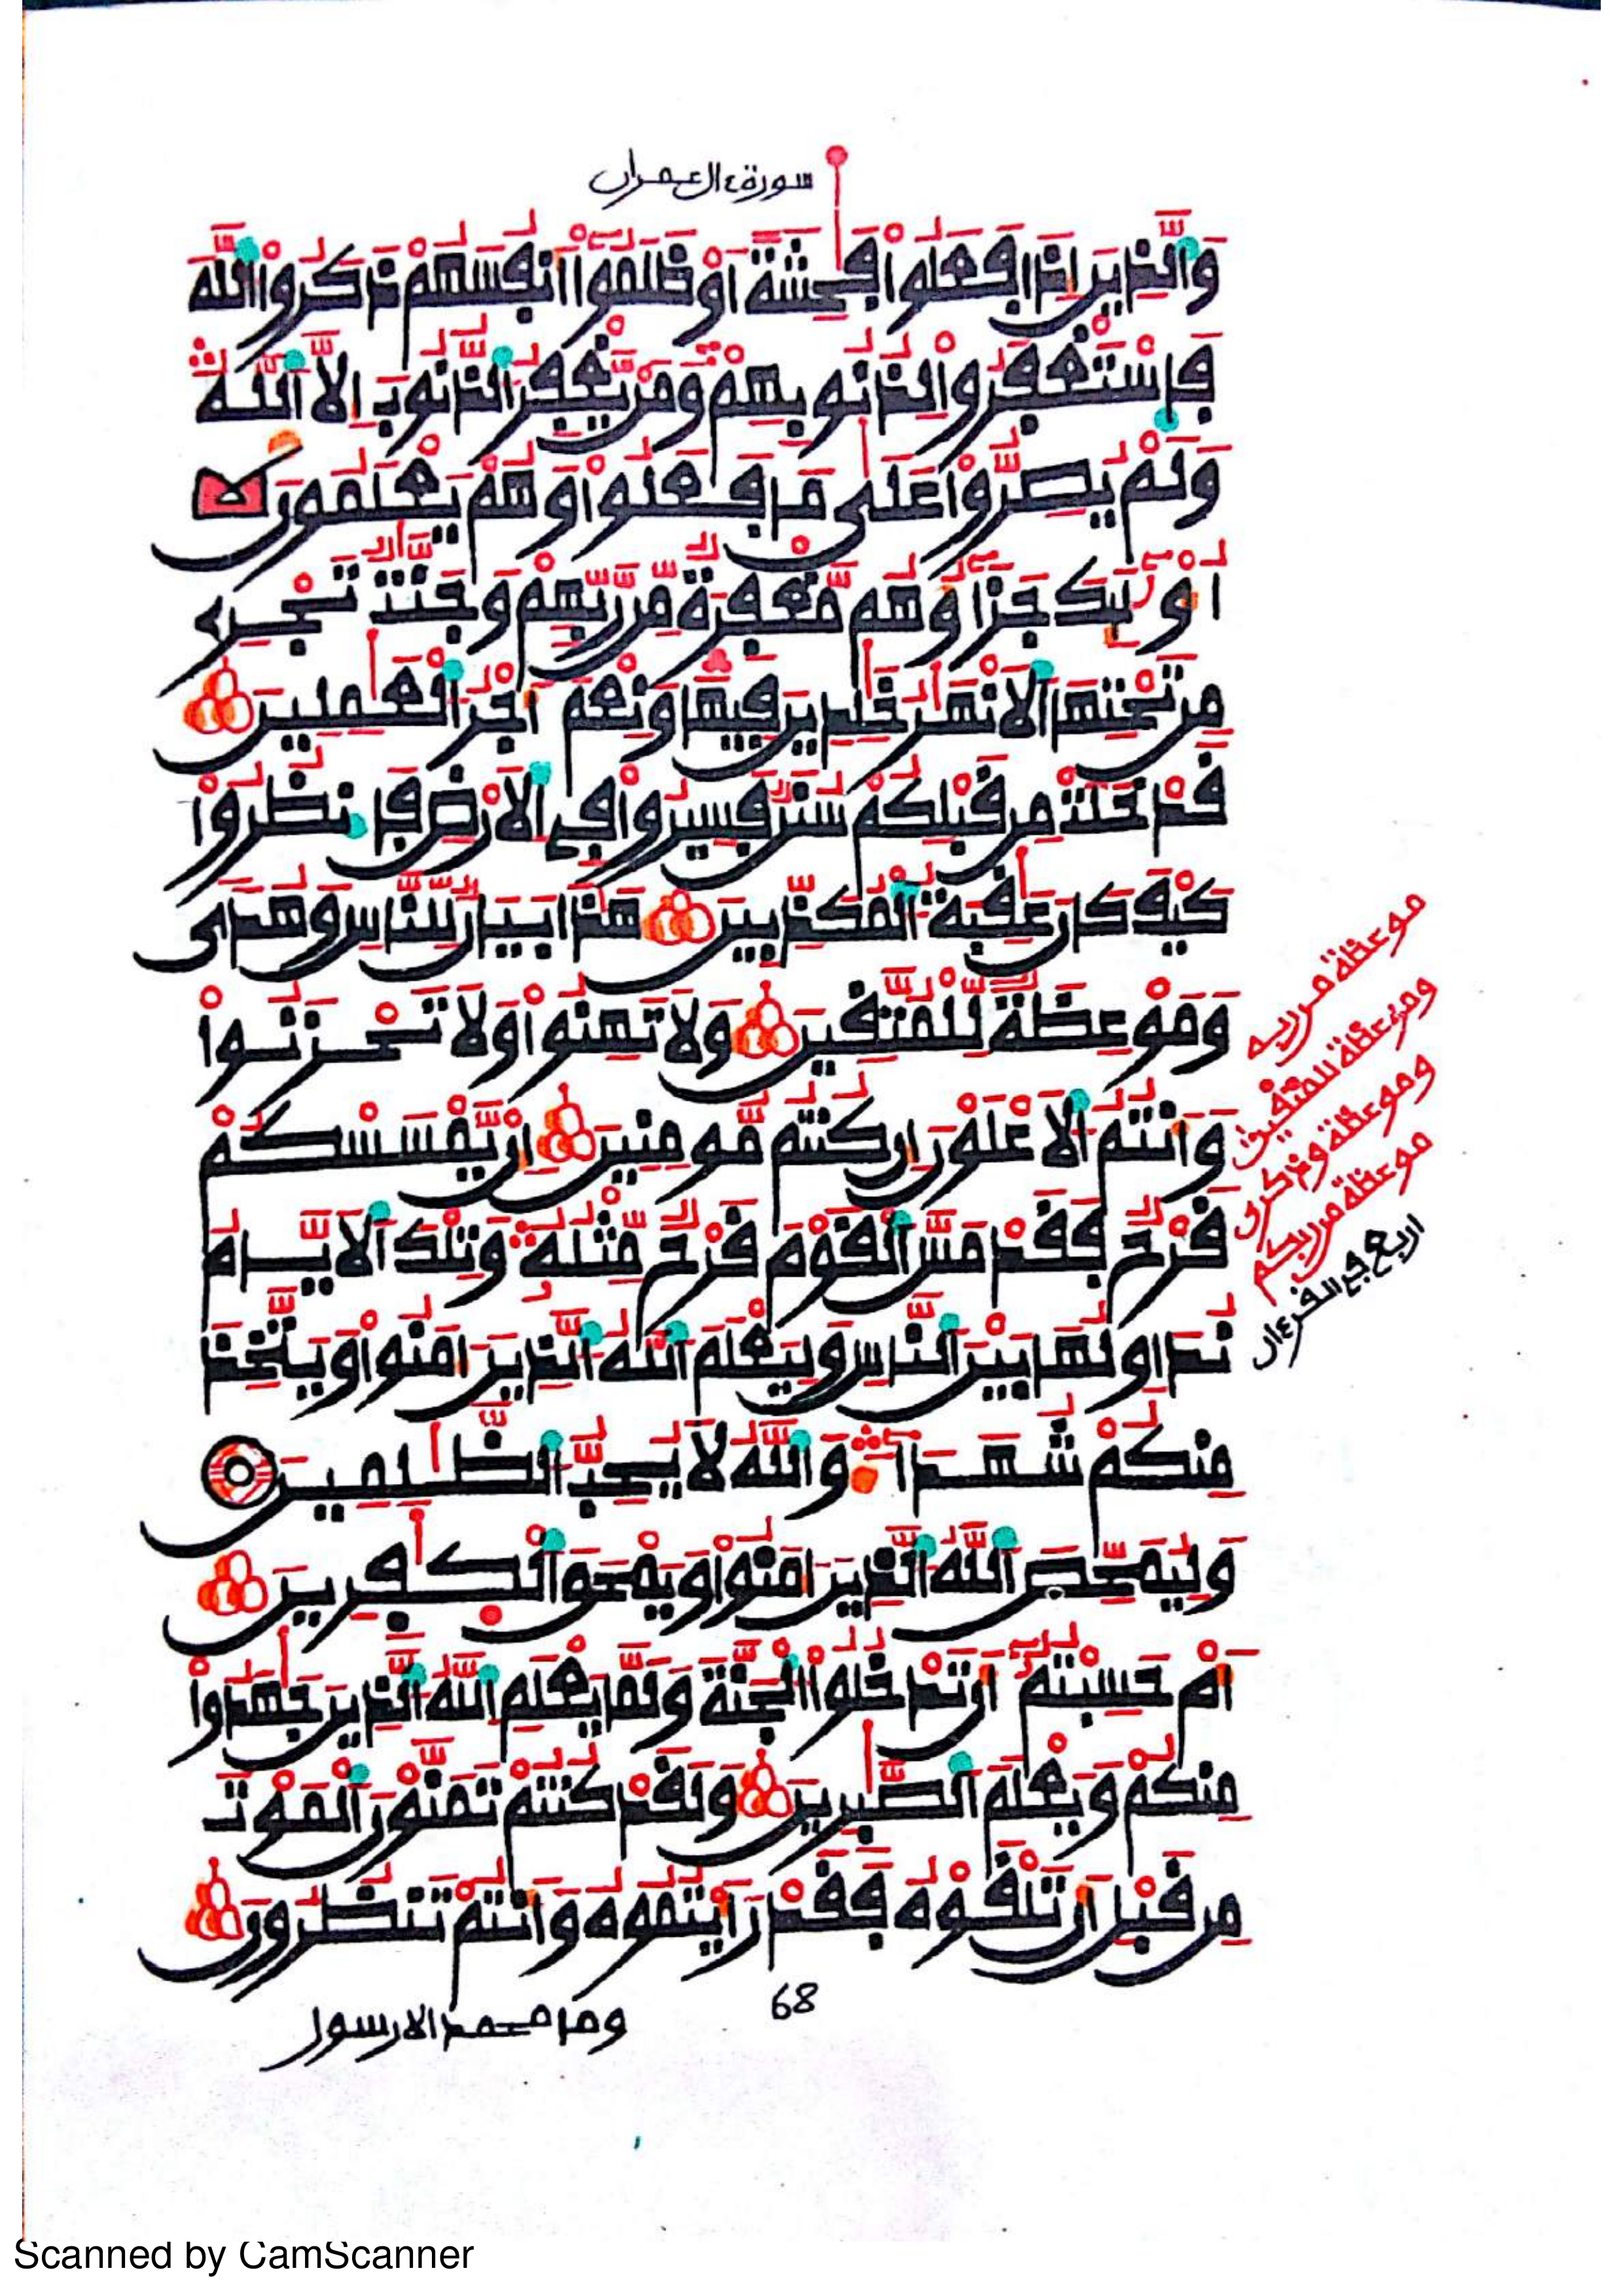 سورة ءال عمران
وَالذِينَ إِذَا فَعَلُواْ فَٰحِشَةً اَوْ ظَلَمُوٓاْ أَنفُسَهُمْ ذَكَرُواْ اللَّهَ
فَاسْتَغْفَرُواْ لِذُنُوبِهِمْ وَمَنْ يَّغْفِرُ الذُّنُوبَ إِلَّا اَللَّهُ
وَلَمْ يُصِرُّواْ عَلَىٰ مَا فَعَلُواْ وَهُمْ يَعْلَمُونَ
أُوْلَٰٓئِكَ جَزَآؤُهُم مَّغْفِرَةٌ مِّن رَّبِّهِمْ وَجَنَّٰتٌ تَجْرِے
مِن تَحْتِهَا اَلَانْهَٰرُ خَٰلِدِينَ فِيهَا وَنِعْمَ أَجْرُ الْعَٰمِلِينَ
قَدْ خَلَتْ مِن قَبْلِكُمْ سُنَنٌ فَسِيرُواْ فِے اِلَارْضِ فَانظُرُواْ
كَيْفَ كَانَ عَٰقِبَةُ الْمُكَذِّبِينَ هَٰذَا بَيَانٌ لِّلنَّاسِ وَهُدىً
وَمَوْعِظَةٌ لِّلْمُتَّقِينَ وَلَا تَهِنُواْ وَلَا تَحْزَنُواْ
وَأَنتُمُ الَاعْلَوْنَ إِن كُنتُم مُّومِنِينَ إِنْ يَّمْسَسْكُمْ
قَرْحٌ فَقَدْ مَسَّ الْقَوْمَ قَرْحٌ مِّثْلُهُ وَتِلْكَ اَلَايَّامُ
نُدَاوِلُهَا بَيْنَ النَّاسِ وَلِيَعْلَمَ اَللَّهُ الذِينَ ءَامَنُواْ وَيَتَّخِذَ
مِنكُمْ شُهَدَآءَ وَاللَّهُ لَا يُحِبُّ الظَّٰلِمِينَ
وَلِيُمَحِّصَ اَللَّهُ الذِينَ ءَامَنُواْ وَيَمْحَقَ اَلْكَٰفِرِينَ
أَمْ حَسِبْتُمُۥٓ أَن تَدْخُلُواْ الْجَنَّةَ وَلَمَّا يَعْلَمِ اِللَّهُ الذِينَ جَٰهَدُواْ
مِنكُمْ وَيَعْلَمَ اَلصَّٰبِرِينَ وَلَقَدْ كُنتُمْ تَمَنَّوْنَ اَلْمَوْتَ
مِن قَبْلِ أَن تَلْقَوْهُ فَقَدْ رَأَيْتُمُوهُ وَأَنتُمْ تَنظُرُونَ
68
وما محمد الا رسول
موعظة من ربه
وموعظة للمتقين
وموعظة وذكرى
موعظة من ربكم
اربع في القرءان
Scanned by CamScanner